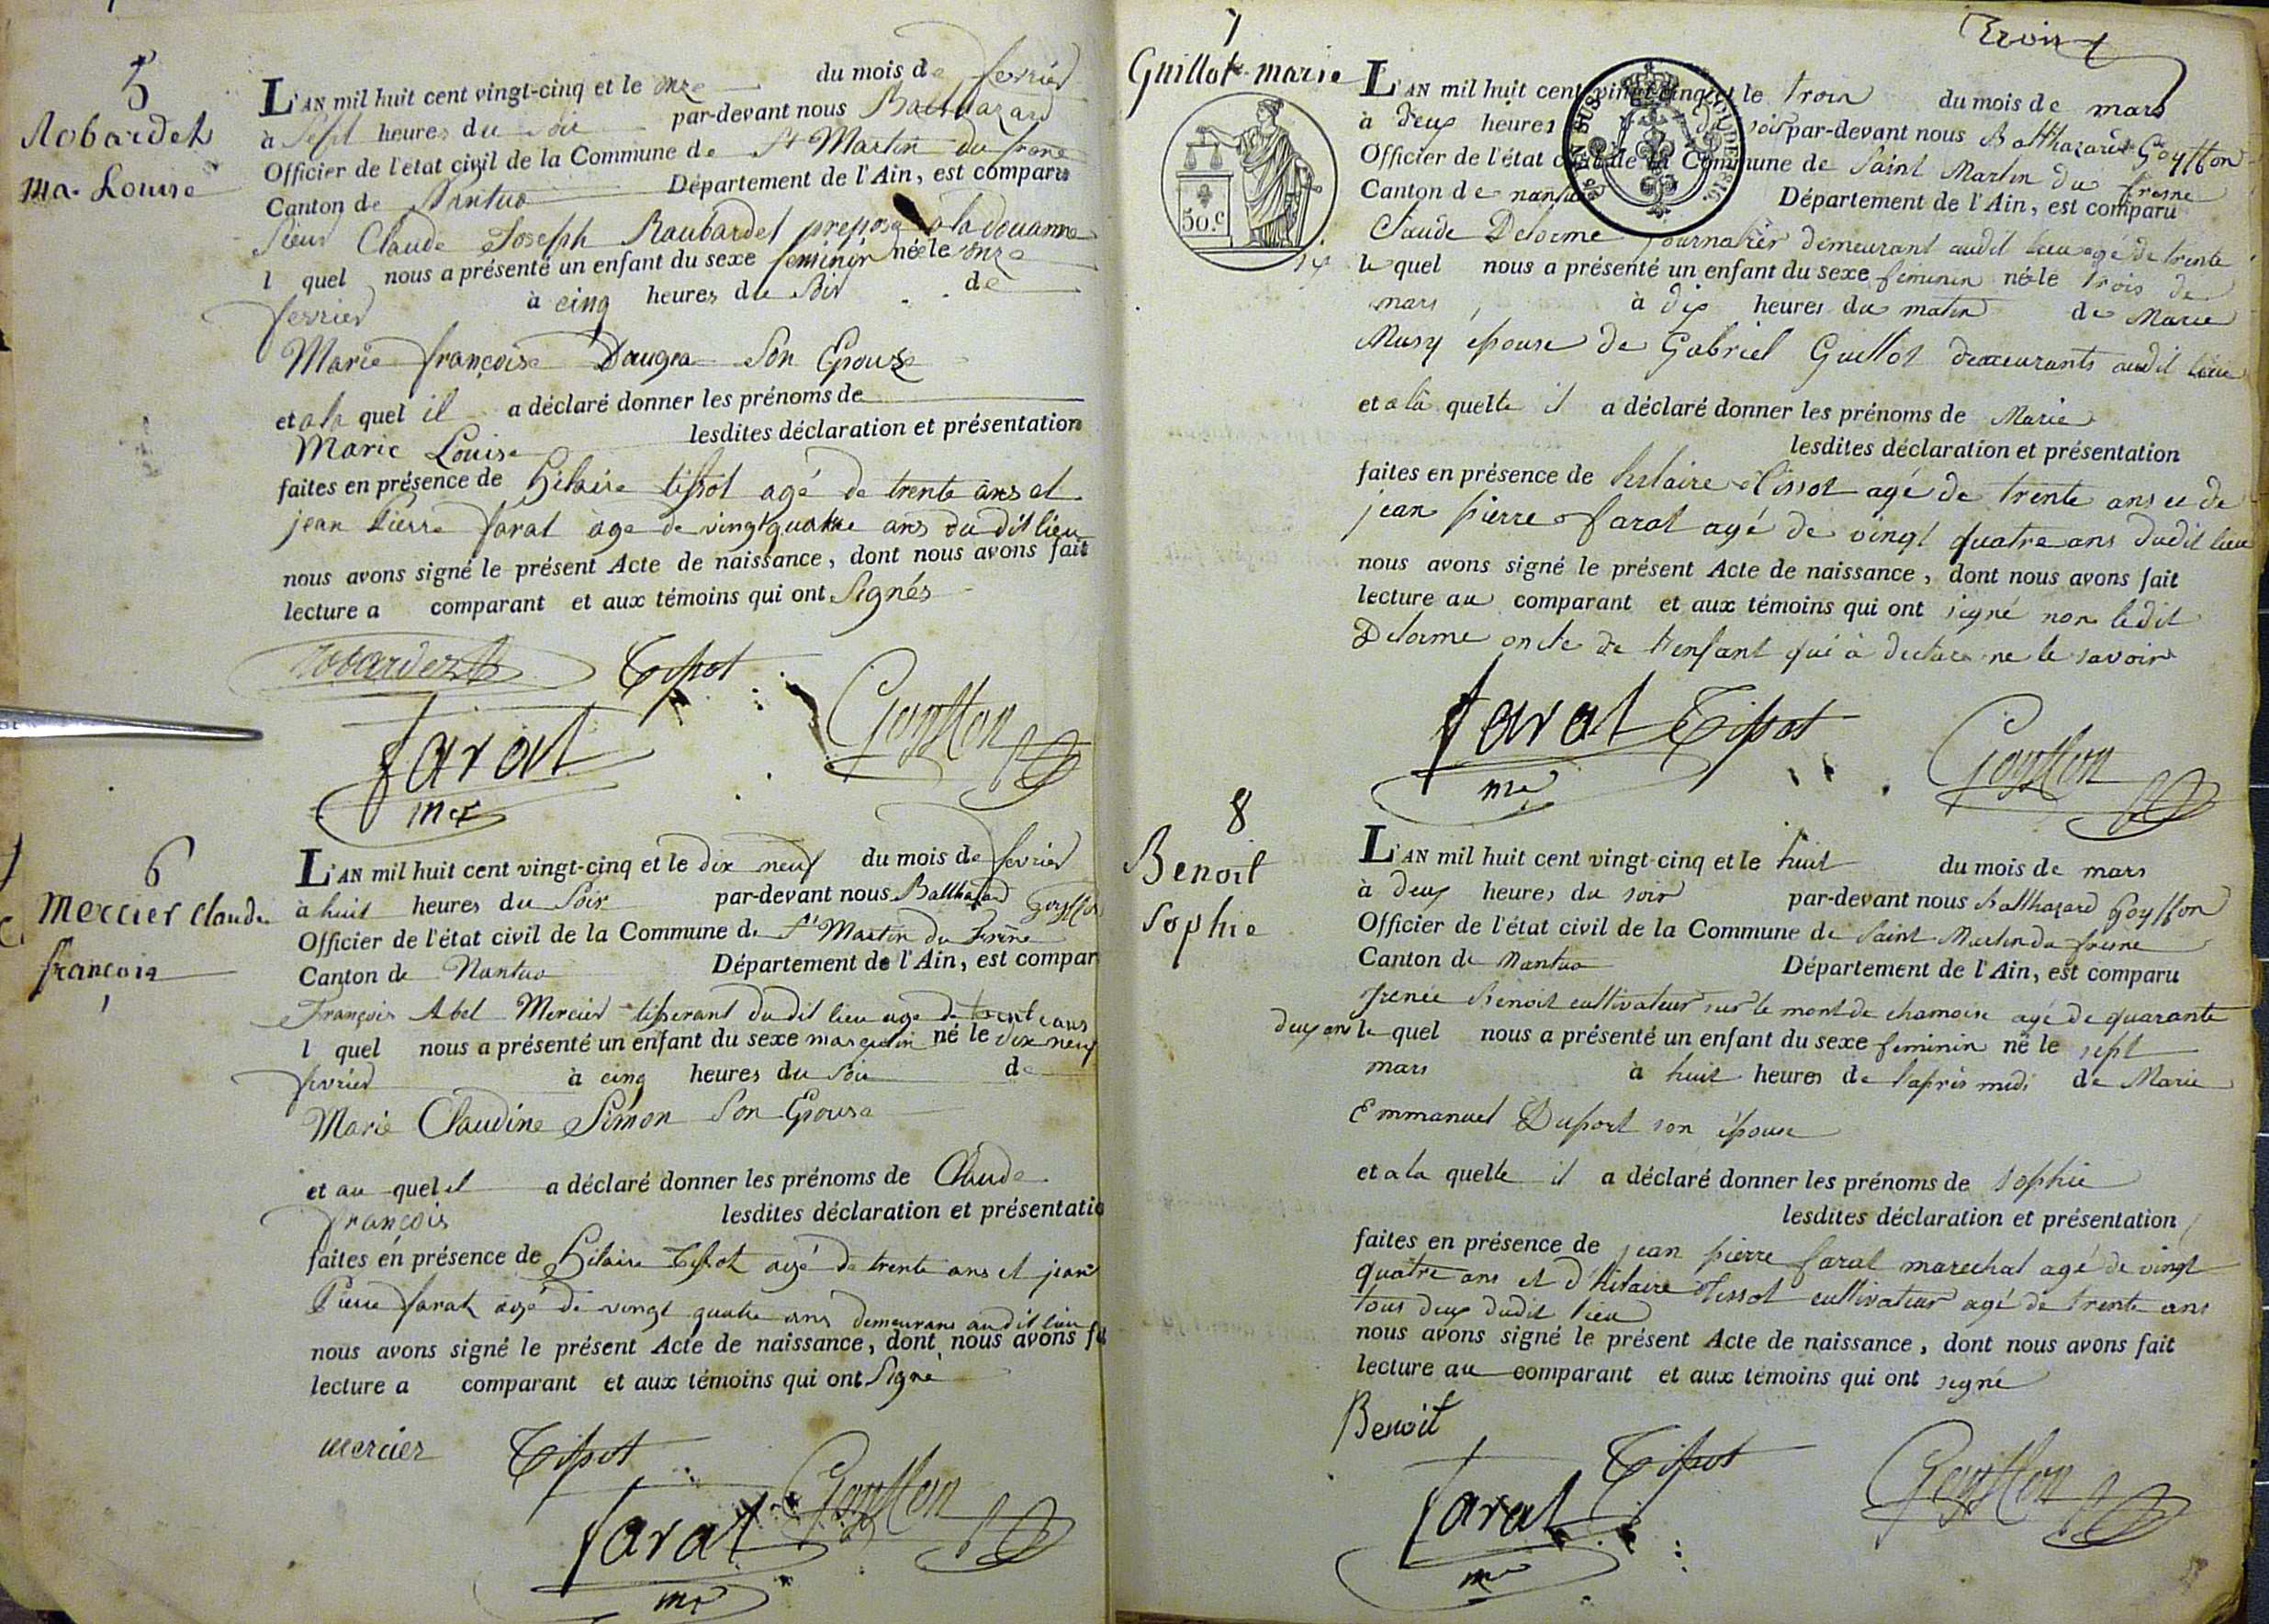 5
Robardet
ma. Louise
L'AN mil huit cent vingt-cinq et le onze du mois de fevrier
à Sept heures du Soir par-devant nous Balthazard
Officier de l'état civil de la Commune de St Martin du frene
Canton de Nantua Département de l'Ain, est comparu
Sieur Claude Joseph Raubardet preposé à la douanne
l quel nous a présenté un enfant du sexe feminin née le onze
fevrier à cinq heures du Soir de
Marie françoise Daugra Son Epouse
et a la quel il a déclaré donner les prénoms de
Marie Louise lesdites déclaration et présentation
faites en présence de hilaire tissot agé de trente ans et
jean Pierre farat age de vingt quatre ans du dit lieu
nous avons signé le présent Acte de naissance, dont nous avons fait
lecture a comparant et aux témoins qui ont Signés
robardet Tissot
farat Goyffon
mal
6
Mercier Claude
françois
L'AN mil huit cent vingt-cinq et le dix neuf du mois de fevrier
à huit heures du Soir par-devant nous Balthazard Goyffon
Officier de l'état civil de la Commune de St Martin du Frêne
Canton de Nantua Département de l'Ain, est compar
François Abel Mercier tisserant dudit lieu age de trente ans
l quel nous a présenté un enfant du sexe masculin né le dix neuf
fevrier à cinq heures du Soir de
Marie Claudine Simon Son Epouse
et au quel il a déclaré donner les prénoms de Claude
françois lesdites déclaration et présentatio
faites en présence de hilaire Tissot agé de trente ans et jean
Pierre farat agé de vingt quatre ans demeurans audit lieu
nous avons signé le présent Acte de naissance, dont nous avons fa
lecture a comparant et aux témoins qui ont Signé
mercier Tissot
farat Goyffon
7
Guillot marie
Trois
L'AN mil huit cent vingt-cinq et le trois du mois de mars
à deux heures du soir par-devant nous Balthazard Goyffon
Officier de l'état civil de la Commune de Saint Martin du fresne
Canton de nantua Département de l'Ain, est comparu
50.C
Claude Delorme journalier demeurant audit lieu agé de trente
six le quel nous a présenté un enfant du sexe feminin né le trois de
mars à dix heures du matin de Marie
Musy épouse de Gabriel Guillot demeurants audit lieu
et a la quelle il a déclaré donner les prénoms de Marie
lesdites déclaration et présentation
faites en présence de hilaire Tissot agé de trente ans et de
jean pierre farat agé de vingt quatre ans dudit lieu
nous avons signé le présent Acte de naissance, dont nous avons fait
lecture au comparant et aux témoins qui ont signé non ledit
Delorme oncle de l'enfant qui à declaré ne le savoir
farat Tissot
Goyffon
8
Benoit
Sophie
L'AN mil huit cent vingt-cinq et le huit du mois de mars
à deux heures du soir par-devant nous Balthazard Goyffon
Officier de l'état civil de la Commune de Saint Martin du fresne
Canton de Nantua Département de l'Ain, est comparu
Irenée Benoit cultivateur sur le mont de chamoise agé de quarante
deux ans le quel nous a présenté un enfant du sexe feminin né le sept
mars à huit heures de l'après midi de Marie
Emmanuel Duport son épouse
et a la quelle il a déclaré donner les prénoms de Sophie
lesdites déclaration et présentation
faites en présence de jean pierre farat marechal agé de vingt
quatre ans et d'hilaire Tissot cultivateur agé de trente ans
tous deux dudit lieu
nous avons signé le présent Acte de naissance, dont nous avons fait
lecture au comparant et aux témoins qui ont signé
Benoit
farat Tissot Goyffon